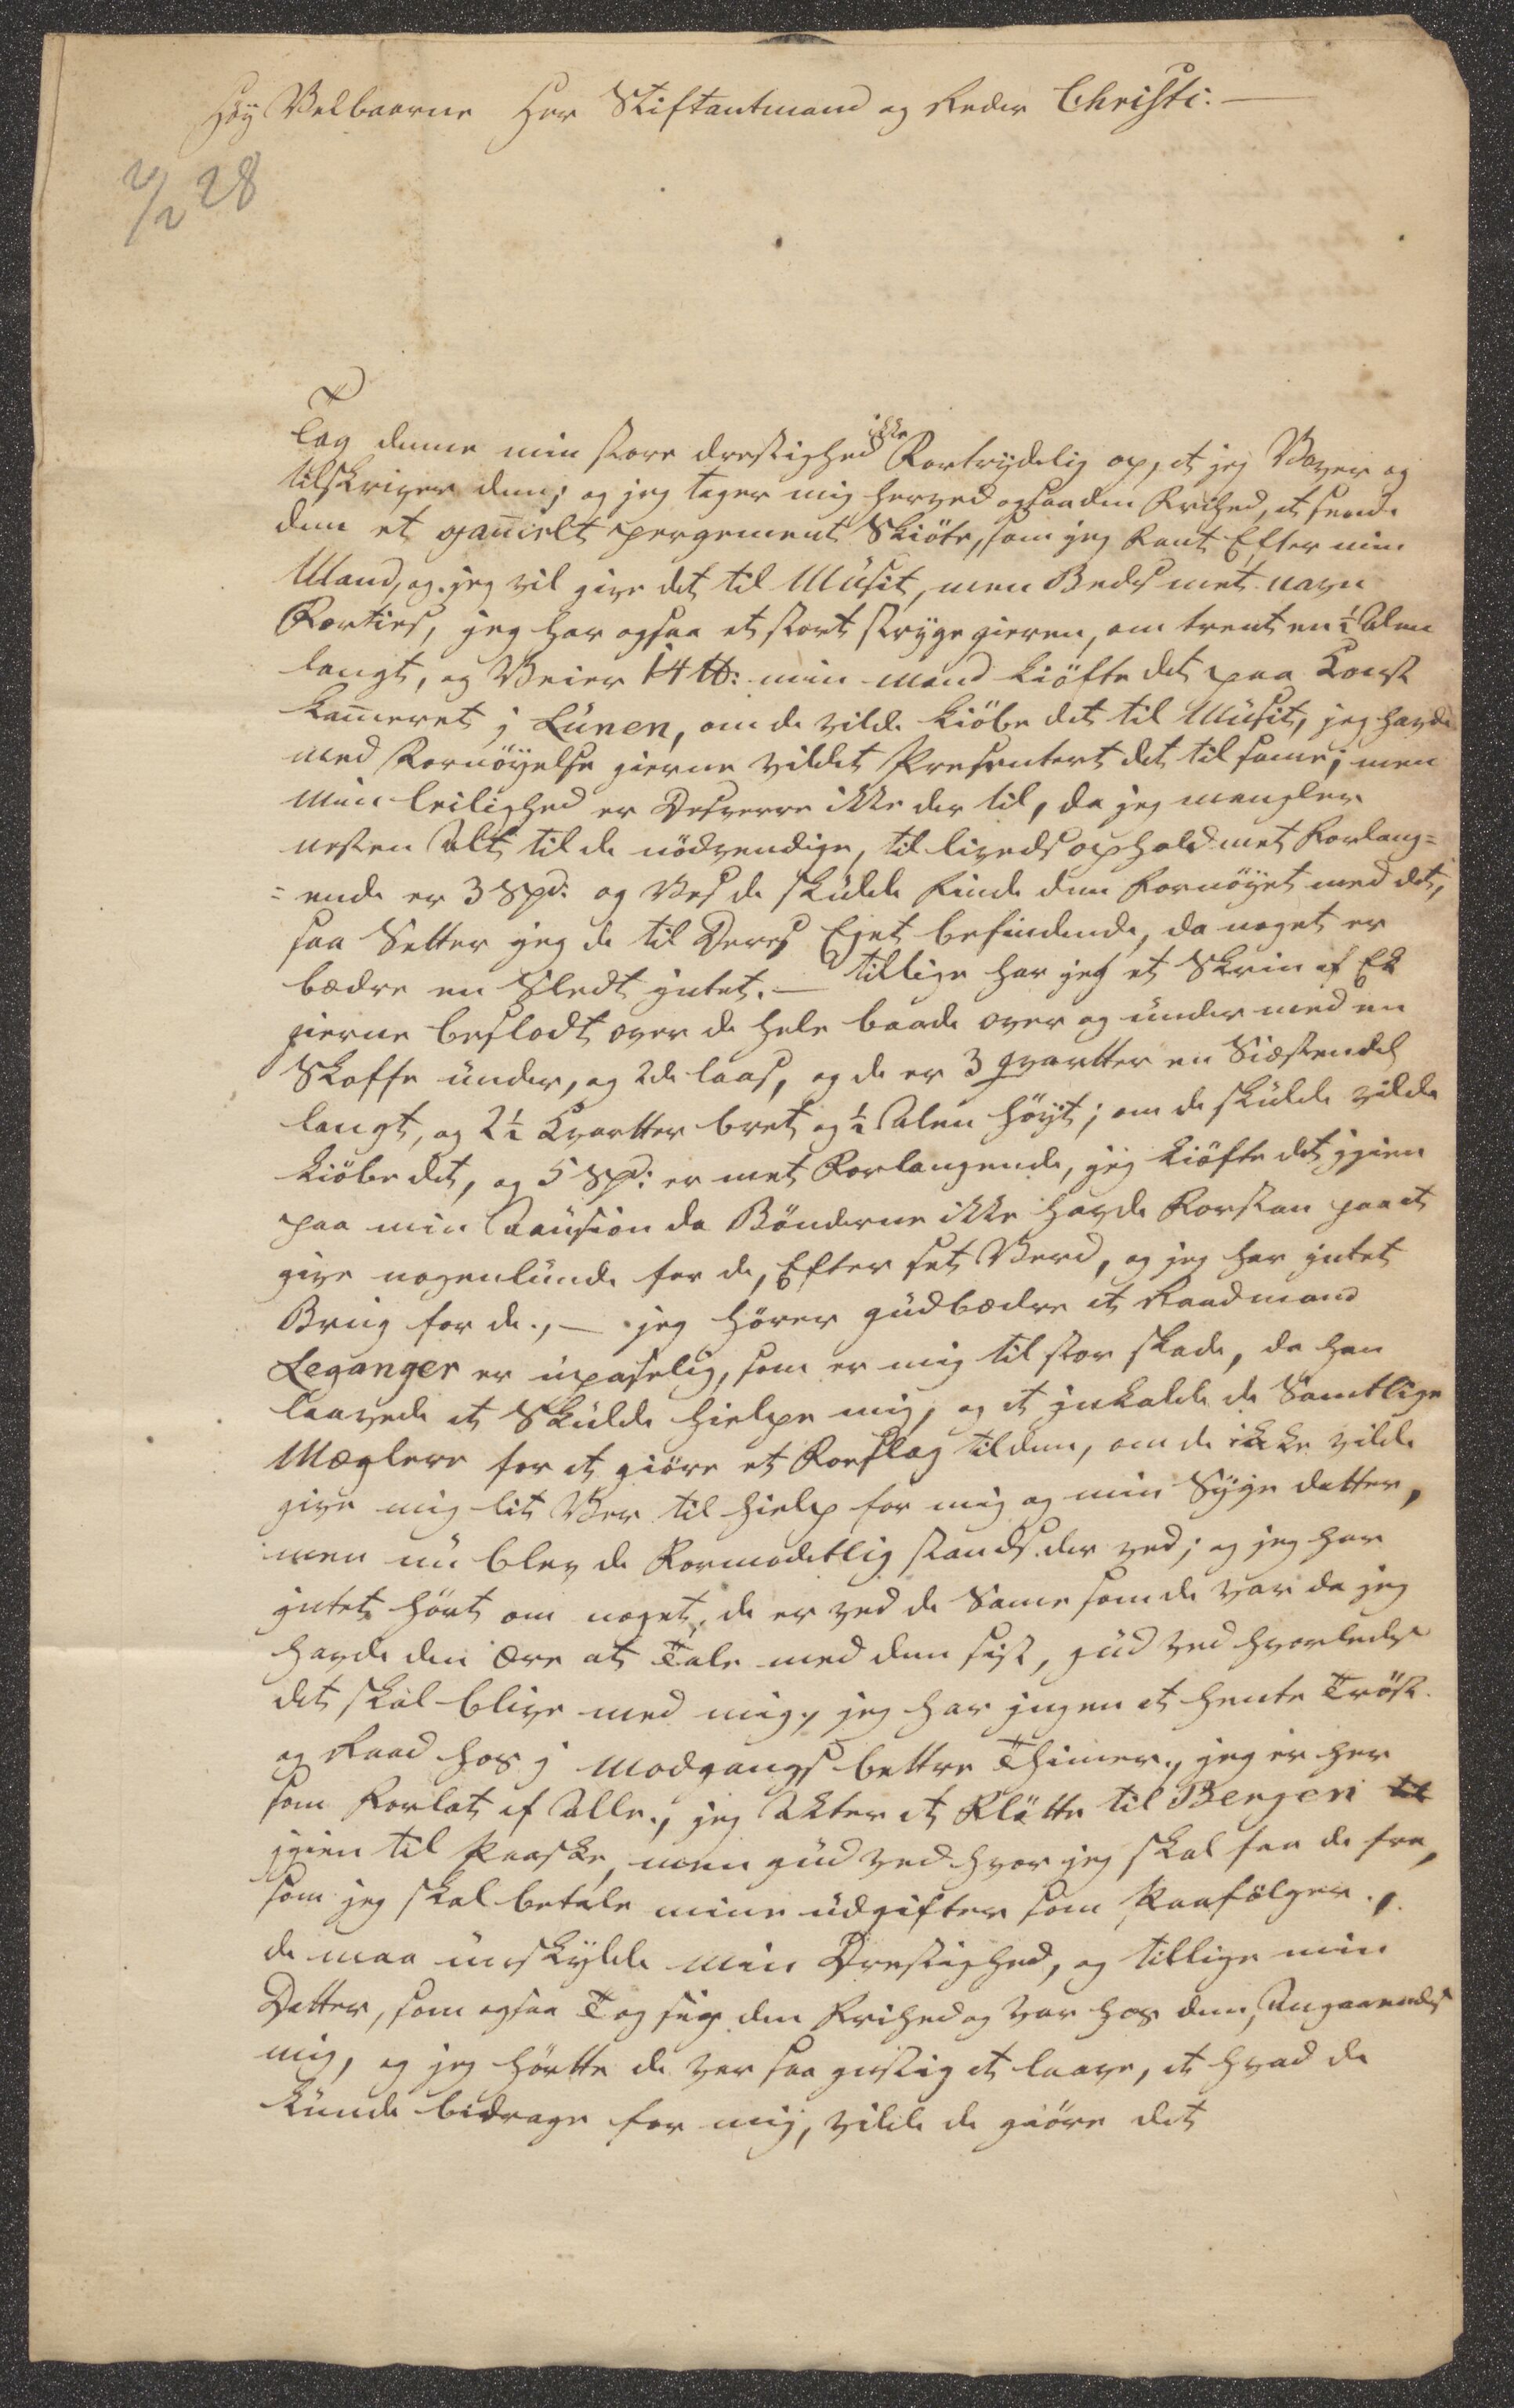 Høy Velbaarne Her Stiftantmand og Reder Christi: —
2/2 28
Tag denne min store drestighed ikke Fortrydelig op, at jeg Vover og
tilskriver dem; og jeg tager mig herved ogsaa den Frihed, at sende
dem et gam̄elt pergement Skiöte, som jeg Fant Efter min
Mand, og jeg vil give det til Müsit, men Beds met navn
Forties, jeg har ogsaa et stort stryge gieren, om trent en ½ Alen
langt, og Veier 14 ℔: min mand kiöfte det paa Konst
kam̄eret j Lünen, om de vilde kiöbe det til Müsit, jeg havde
med Fornöyelse gierne vildet Presentert det til same; men
Min leilighed er Desverre ikke der til, da jeg mangler
nesten Alt til de nödvendige, til liveds ophold met Forlang=
=ende er 3 Spd: og Ves de skülde Finde dem Fornöyet med det,
saa Setter jeg de til Deres Eget befindende, da noget er
bædre en Sledt jntet. — tillige har jeg et Skrin af Ek
gierne beslodt over de hele baade over og ünder med en
Skoffe ünder, og 2de laas, og de er 3 qvartter en Siæstendel
langt, og 2½ Kvartter bret og ½ Alen höyt; om de skülde vilde
kiöbe det, og 5 Spd: er met Forlangende, jeg kiöfte det jgien
paa min Aaüsion da Bönderne ikke havde Forstan paa at
give nogenlünde for de, Efter set Verd, og jeg har jntet
Brüg for de., — jeg hörer güdbædre at Raadmand
Leganger er üpaselig, som er mig til stor skade, da han
laavede at Skülde hielpe mig, og at jnkalde de Samtlige
Mæglere for at giöre et Forslag til dem, om de ikke vilde
give mig lit Ver til hielp for mig og min Syge datter,
men nü blev de Formodetlig stands der ved; og jeg har
jntet hört om noget, de er ved de Same som de var da jeg
havde den Ære at Tale med dem sist, güd ved hvorledes
det skal blive med mig., jeg har jngen at hente Tröst
og Raad hos j Modgangs bettre Thimer., jeg er her
som Forlat af Alle., jeg Akter at Flötte til Bergen
jgien til Paaske, men güd ved hvor jeg skal faa de fra,
som jeg skal betale mine üdgifter som Paafölger.,
de maa ünskylde Min Drestighed, og tillige min
Datter, som ogsaa Tog sig den Frihed og var hos dem, Angaaendes
mig, og jeg hörtte de var saa gustig at laave, at hvad de
künde bidrage for mig, vilde de giöre det